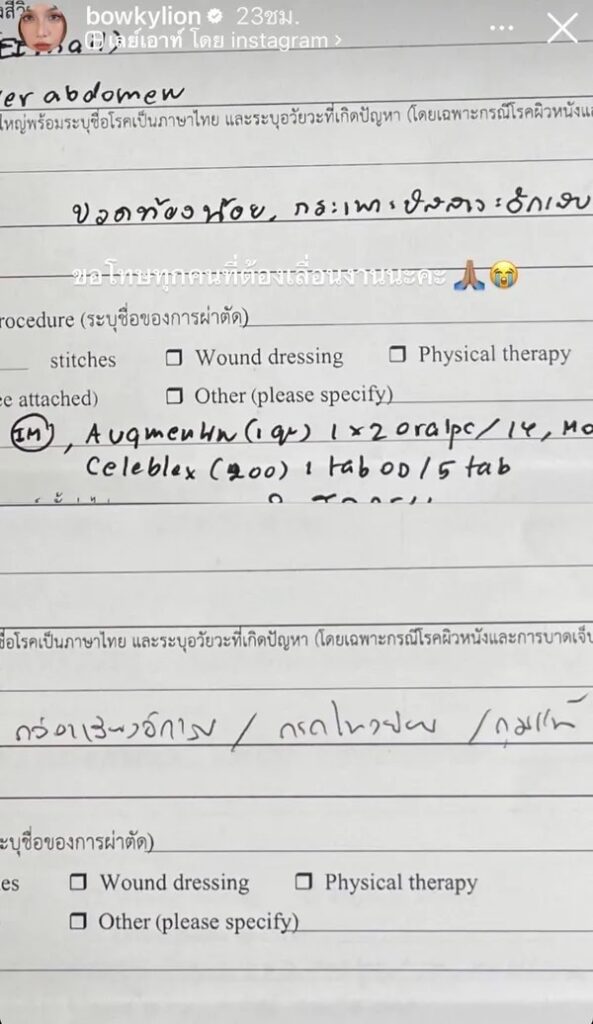 bowkylion 23ชม.
เลย์เอาท์ โดย instagram >
er abdomen
ใหญ่พร้อมระบุชื่อโรคเป็นภาษาไทย และระบุอวัยวะที่เกิดปัญหา (โดยเฉพาะกรณีโรคผิวหนังและ
ปวดท้องน้อย, กระเพาะปัสสาวะอักเสบ
ขอโทษทุกคนที่ต้องเลื่อนงานนะคะ 🙏🏽😭
rocedure (ระบุชื่อของการผ่าตัด)
stitches ☐ Wound dressing ☐ Physical therapy
ee attached) ☐ Other (please specify)
IM, Augmentin (1 gr) 1 x 2 oral pc / 14, Mo
Celeblex (200) 1 tab OD / 5 tab
ชื่อโรคเป็นภาษาไทย และระบุอวัยวะที่เกิดปัญหา (โดยเฉพาะกรณีโรคผิวหนังและการบาดเจ็บ
กล่องเสียงอักเสบ / กรดไหลย้อน / ภูมิแพ้
ะบุชื่อของการผ่าตัด)
es ☐ Wound dressing ☐ Physical therapy
☐ Other (please specify)